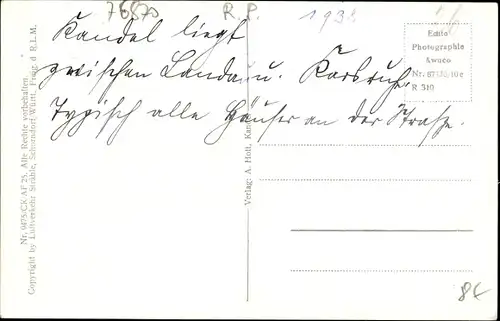 76870
R.P.
1938
Kandel liegt
zwischen Landau u. Karlsruhe.
Typisch alle Häuser an der Straße.
Echte
Photographie
Awuco
R 310
Nr. 9475/CK AF 25. Alle Rechte vorbehalten.
Copyright by Luftverkehr Strähle, Schorndorf-Württ. Freig. d. R.L.M.
Verlag: A. Hott, Kan
8€